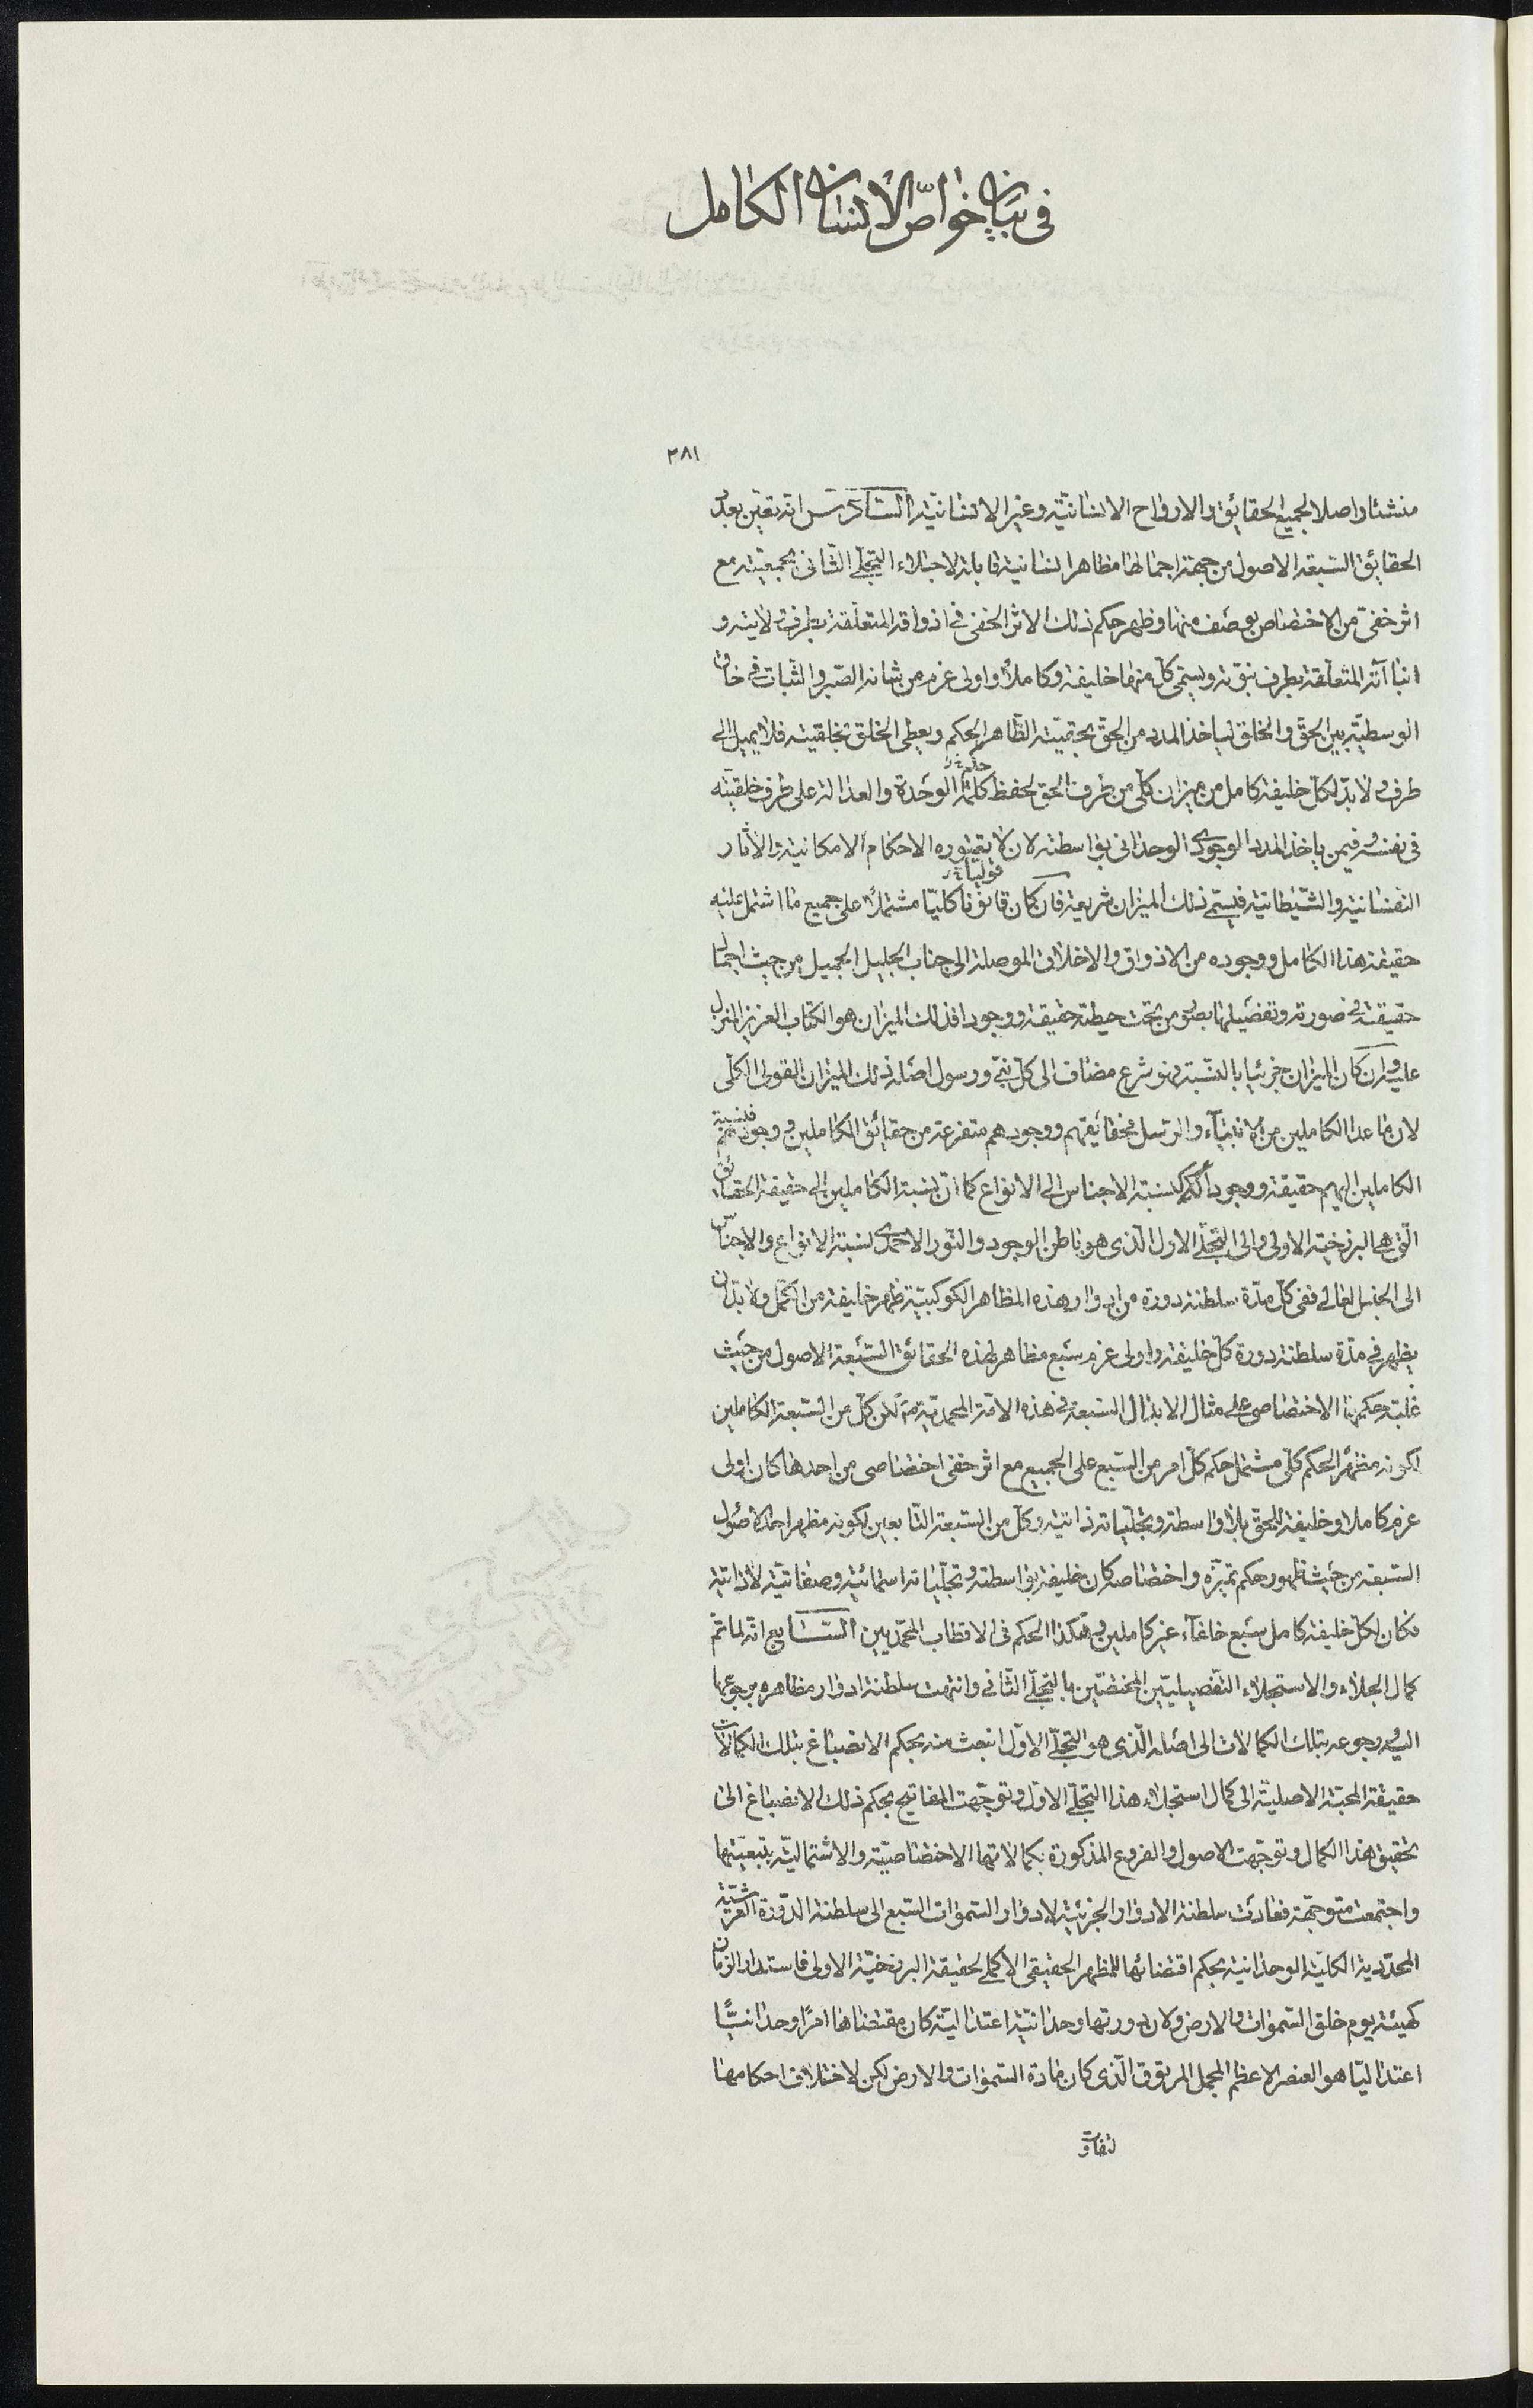 فى بيان خواصّ الانسان الكامل
٢٨١
منشئا واصلا لجميع الحقائق والارواح الانسانيّة وغير الانسانيّة السّادس انه تعيّن بعد
الحقائق السّبعة الاصول من جهة اجمالها مظاهر انسانية قابلة لاجتلاء التجلّى الثّانى بجمعيّته مع
اثر خفىّ من الاختصاص بوصف منها وظهر حكم ذلك الاثر الخفى فى اذواقه المتعلّقة بطرف ولايته و
انباآته المتعلّقة بطرف نبوّته ويسمّى كلّ منها خليفة وكاملا واولى عزم من شانه الصّبر والثبات فى حاق
الوسطيّة بين الحقّ والخلق لياخذ المدد من الحقّ بحقيّته الظّاهر الحكم ويعطى الخلق بخلقيته فلا يميل الى
طرف ولا بدّ لكلّ خليفة كامل من ميزان كلّى من طرف الحق لحفظ كلمة الوحدة والعدالة على طرف خلقيته
فى نفسه وفيمن ياخذ المدد الوجودى الوحدانى بواسطته لان لا يعتوره الاحكام الامكانية والاثار
النفسانية والشّيطانيّة فيسمّى ذلك الميزان شريعة فان كان قانونا كليّا مشتملا على جميع ما اشتمل عليه
حقيقة هذا الكامل ووجوده من الاذواق والاخلاق الموصلة الى جناب الجليل الجميل من حيث اجمال
حقيقة فى صورته وتفصيلها بصور من تحت حيطته حقيقة ووجودا فذلك الميزان هو الكتاب العزيز المنزل
عليه وان كان الميزان جزئيا بالنسبة فهو شرع مضاف الى كلّ نبىّ ورسول اصله ذلك الميزان القولى الكلّى
لان ما عدا الكاملين من الانبياء والرّسل فحقائقهم ووجودهم متفرعة من حقائق الكاملين ووجودهم فنسبة
الكاملين اليهم حقيقة ووجودا كنسبة الاجناس الى الانواع كما انّ نسبة الكاملين الى حقيقة الحقائق
الّتى هى البرزخيّة الاولى والى التجلّى الاول الّذى هو باطن الوجود والنّور الاحمدى نسبة الانواع والاجناس
الى الجنس العالى ففى كلّ مدّة سلطنة دورة من ادوار هذه المظاهر الكوكبيّة ظهر خليفة من الكمّل ولا بدّ ان
يظهر فى مدّة سلطنة دورة كلّ خليفة واولى عزم سبع مظاهر لهذه الحقائق السّبعة الاصول من حيث
غلبة حكمها الاختصاصى على مثال الابدال السّبعة فى هذه الامّة المحمديّة لكن كلّ من السّبعة الكاملين
لكونه مظهر الحكم كلّى مشتمل حكم كلّ امر من السّبع على الجميع مع اثر خفى اختصاصى من احدها كان اولى
عزم كاملا وخليفة للحق بلا واسطة وتجلّياته ذاتية وكلّ من السّبعة التّابعين لكونه مظهر احد الاصول
السّبعة من حيث ظهور حكم تميّزه واختصاصه كان خليفة بواسطة وتجلّياته اسمائيّة وصفاتيّة لا ذاتية
فكان لكلّ خليفة كامل سبع خلفاء غير كاملين وهكذا الحكم فى الاقطاب المحمّديين السّابع انّه لما تمّ
كمال الجلاء والاستجلاء التّفصيليّين المختصّين بالتجلّى الثّانى وانتهت سلطنة ادوار مظاهره برجوعها
اليه ورجوعه بتلك الكمالات الى اصله الّذى هو التجلّى الاوّل انبعث منه بحكم الانصباغ بتلك الكمالات
حقيقة المحبّة الاصليّة الى كمال استجلاء هذا التجلّى الاوّل وتوجّهت المفاتيح بحكم ذلك الانصباغ الى
تحقيق هذا الكمال وتوجّهت الاصول والفروع المذكورة بكمالاتها الاختصاصيّة والاشتماليّة بتبعيّتها
واجتمعت متوجّهة فعادت سلطنة الادوار الجزئيّة لادوار السّموات السّبع الى سلطنة الدّورة العرشيّة
المحدّدية الكليّة الوحدانية بحكم اقتضائها للمظهر الحقيقى الاكملى لحقيقة البرزخيّة الاولى فاستدار الزمان
كهيئته يوم خلق السّموات والارض ولان دورتها وحدانيّة اعتداليّة كان مقتضاها امرا وحدانيّا
اعتداليّا هو العنصر الاعظم المجمل المرتوق الّذى كان مادّة السّموات والارض لكن لاختلاف احكامها
لتفاوت